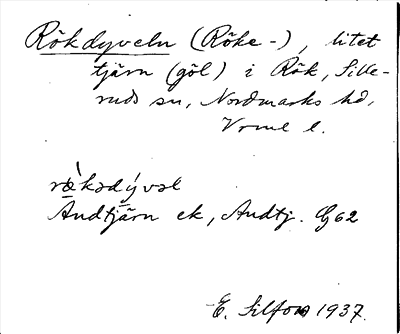 Rökdyveln (Röke-), litet
tjärn (göl) i Rök, Sille-
ruds sn, Nordmarks hd,
Vrml l.
ræ̀kədývəl
Andtjärn ek, Andtj. G 62
E. 1937.